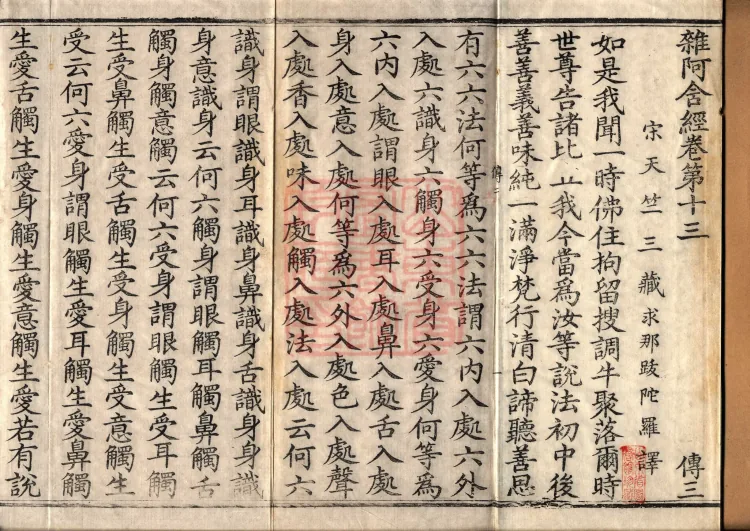 雜阿含經卷第十三 傳三
宋天竺三藏求那跋陀羅譯
如是我聞一時佛住拘留搜調牛聚落爾時
世尊告諸比丘我今當為汝等說法初中後
善善義善味純一滿淨梵行清白諦聽善思
有六六法何等為六六法謂六內入處六外
入處六識身六觸身六受身六愛身何等為
六內入處謂眼入處耳入處鼻入處舌入處
身入處意入處何等為六外入處色入處聲
入處香入處味入處觸入處法入處云何六
識身謂眼識身耳識身鼻識身舌識身身識
身意識身云何六觸身謂眼觸耳觸鼻觸舌
觸身觸意觸云何六受身謂眼觸生受耳觸
生受鼻觸生受舌觸生受身觸生受意觸生
受云何六愛身謂眼觸生愛耳觸生愛鼻觸
生愛舌觸生愛身觸生愛意觸生愛若有說